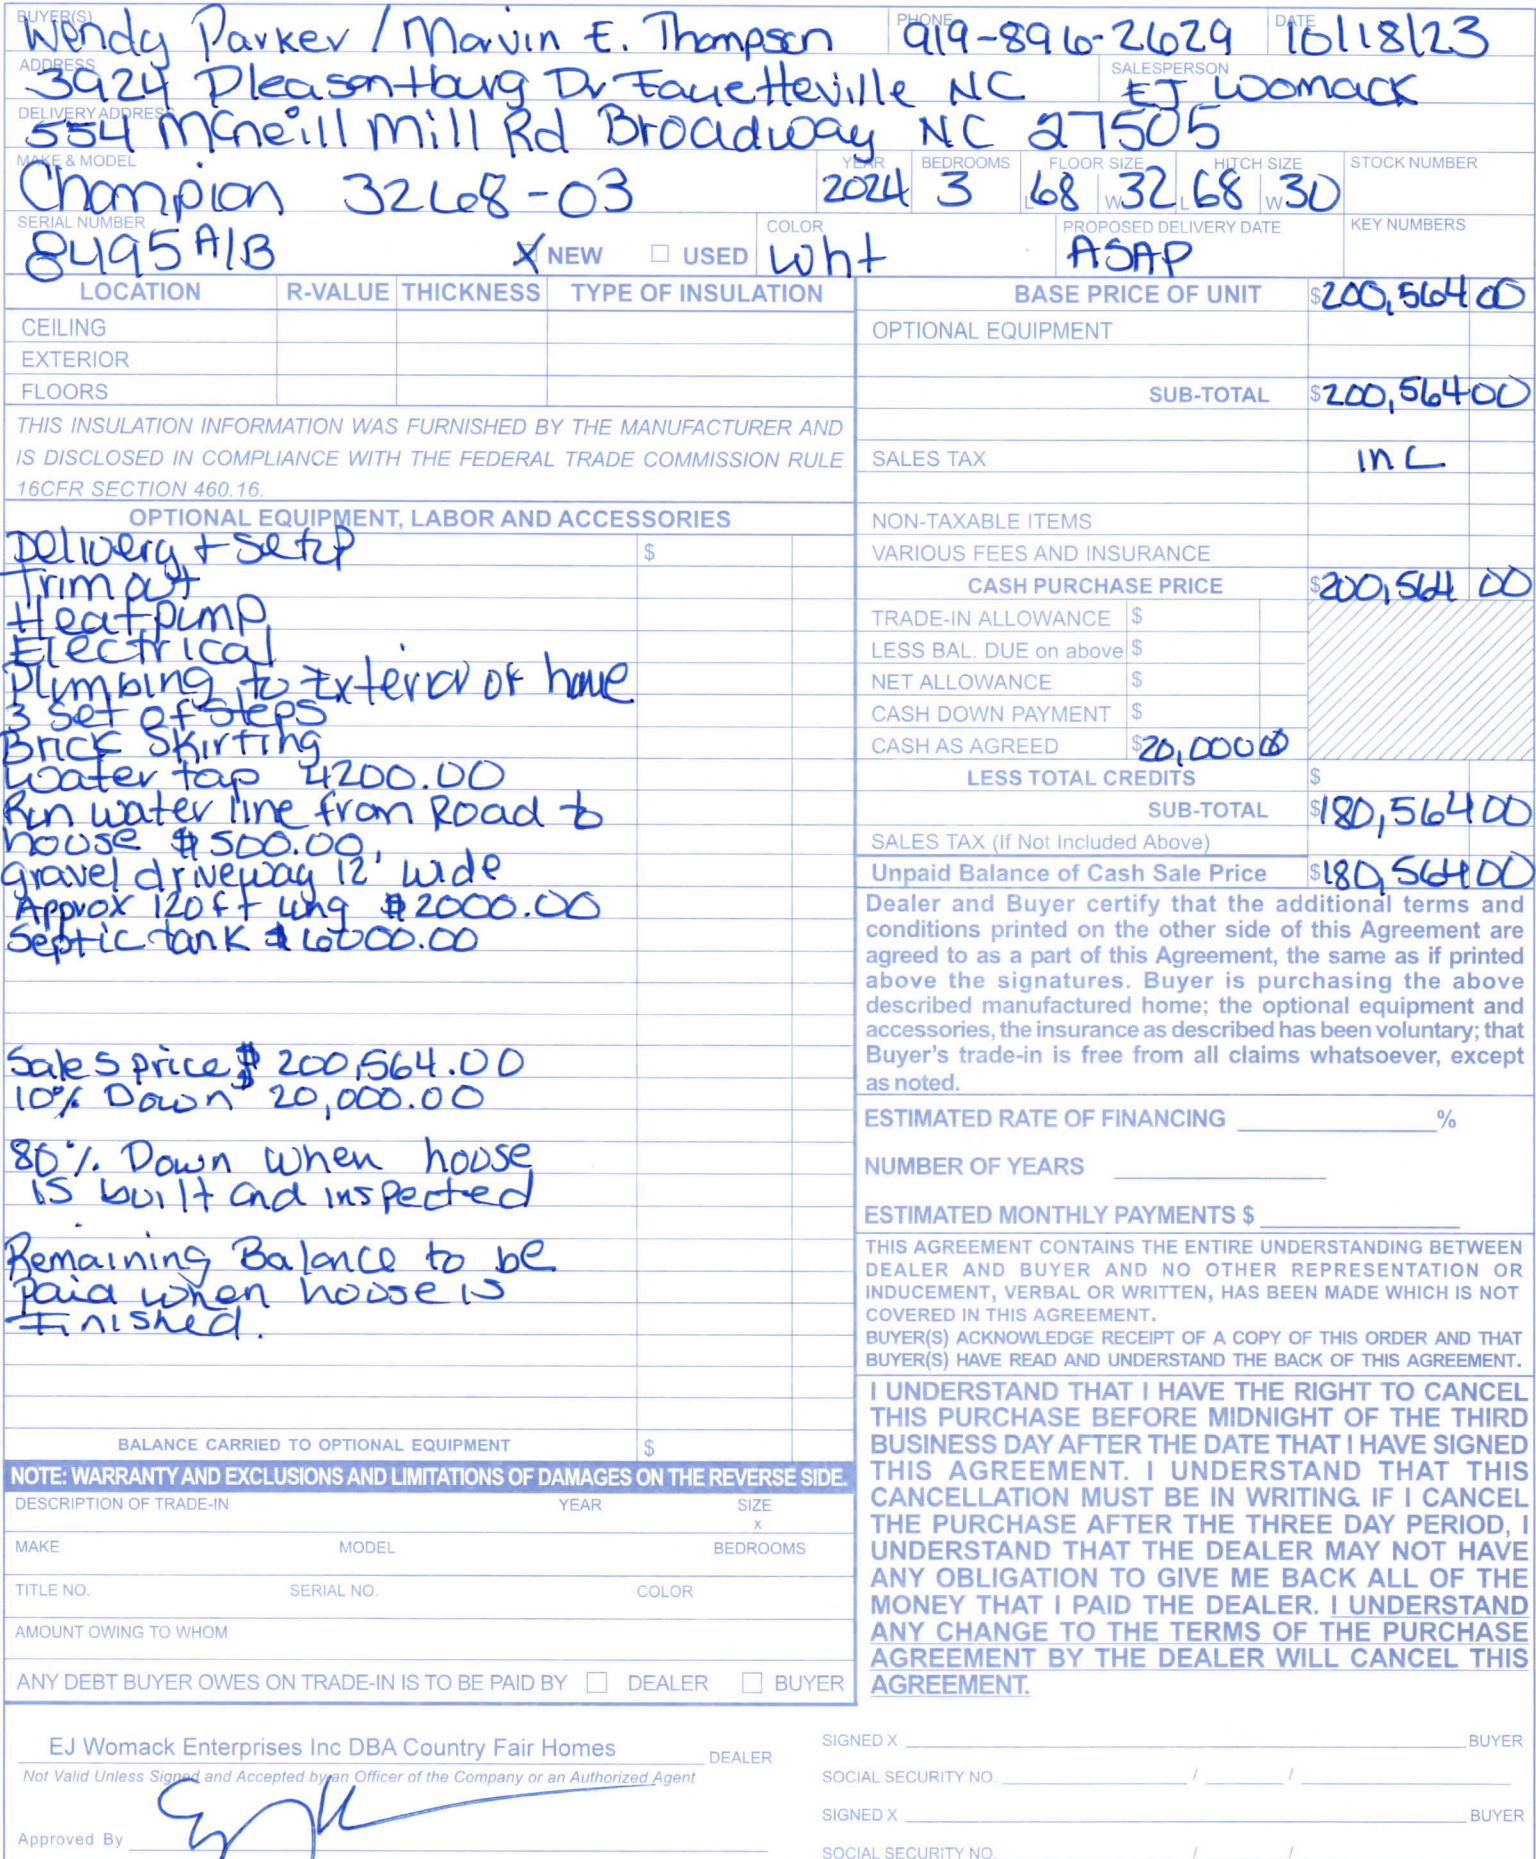 BUYER(S) Wendy Parker / Marvin E. Thompson PHONE 919-896-2629 DATE 10/18/23
ADDRESS 3924 Pleasantburg Dr Fayetteville NC SALESPERSON EJ Womack
DELIVERY ADDRESS 554 McNeill Mill Rd Broadway NC 27505
MAKE & MODEL Champion 3268-03 YEAR 2024 BEDROOMS 3 FLOOR SIZE L 68 W 32 HITCH SIZE L 68 W 30 STOCK NUMBER
SERIAL NUMBER 8495 A/B X NEW ☐ USED COLOR Wht PROPOSED DELIVERY DATE ASAP KEY NUMBERS
LOCATION R-VALUE THICKNESS TYPE OF INSULATION
CEILING
EXTERIOR
FLOORS
THIS INSULATION INFORMATION WAS FURNISHED BY THE MANUFACTURER AND
IS DISCLOSED IN COMPLIANCE WITH THE FEDERAL TRADE COMMISSION RULE
16CFR SECTION 460.16.
OPTIONAL EQUIPMENT, LABOR AND ACCESSORIES
Delivery + Setup $
Trim out
Heat pump
Electrical
Plumbing to Exterior of home
3 Set of Steps
Brick Skirting
Water tap 4200.00
Run water line from Road to
house $500.00
gravel driveway 12' wide
Approx 120ft long $2000.00
Septic tank $6000.00
Sales price $ 200,564.00
10% Down 20,000.00
80% Down when house
is built and inspected
Remaining Balance to be
Paid when house is
Finished.
BALANCE CARRIED TO OPTIONAL EQUIPMENT $
NOTE: WARRANTY AND EXCLUSIONS AND LIMITATIONS OF DAMAGES ON THE REVERSE SIDE.
DESCRIPTION OF TRADE-IN YEAR SIZE
x
MAKE MODEL BEDROOMS
TITLE NO. SERIAL NO. COLOR
AMOUNT OWING TO WHOM
ANY DEBT BUYER OWES ON TRADE-IN IS TO BE PAID BY ☐ DEALER ☐ BUYER
BASE PRICE OF UNIT $200,564 00
OPTIONAL EQUIPMENT
SUB-TOTAL $200,564 00
SALES TAX inc
NON-TAXABLE ITEMS
VARIOUS FEES AND INSURANCE
CASH PURCHASE PRICE $200,564 00
TRADE-IN ALLOWANCE $
LESS BAL. DUE on above $
NET ALLOWANCE $
CASH DOWN PAYMENT $
CASH AS AGREED $20,000 00
LESS TOTAL CREDITS $
SUB-TOTAL $180,564 00
SALES TAX (If Not Included Above)
Unpaid Balance of Cash Sale Price $180,564 00
Dealer and Buyer certify that the additional terms and
conditions printed on the other side of this Agreement are
agreed to as a part of this Agreement, the same as if printed
above the signatures. Buyer is purchasing the above
described manufactured home; the optional equipment and
accessories, the insurance as described has been voluntary; that
Buyer's trade-in is free from all claims whatsoever, except
as noted.
ESTIMATED RATE OF FINANCING %
NUMBER OF YEARS
ESTIMATED MONTHLY PAYMENTS $
THIS AGREEMENT CONTAINS THE ENTIRE UNDERSTANDING BETWEEN
DEALER AND BUYER AND NO OTHER REPRESENTATION OR
INDUCEMENT, VERBAL OR WRITTEN, HAS BEEN MADE WHICH IS NOT
COVERED IN THIS AGREEMENT.
BUYER(S) ACKNOWLEDGE RECEIPT OF A COPY OF THIS ORDER AND THAT
BUYER(S) HAVE READ AND UNDERSTAND THE BACK OF THIS AGREEMENT.
I UNDERSTAND THAT I HAVE THE RIGHT TO CANCEL
THIS PURCHASE BEFORE MIDNIGHT OF THE THIRD
BUSINESS DAY AFTER THE DATE THAT I HAVE SIGNED
THIS AGREEMENT. I UNDERSTAND THAT THIS
CANCELLATION MUST BE IN WRITING. IF I CANCEL
THE PURCHASE AFTER THE THREE DAY PERIOD, I
UNDERSTAND THAT THE DEALER MAY NOT HAVE
ANY OBLIGATION TO GIVE ME BACK ALL OF THE
MONEY THAT I PAID THE DEALER. I UNDERSTAND
ANY CHANGE TO THE TERMS OF THE PURCHASE
AGREEMENT BY THE DEALER WILL CANCEL THIS
AGREEMENT.
EJ Womack Enterprises Inc DBA Country Fair Homes DEALER
Not Valid Unless Signed and Accepted by an Officer of the Company or an Authorized Agent
Approved By
SIGNED X BUYER
SOCIAL SECURITY NO. / /
SIGNED X BUYER
SOCIAL SECURITY NO. / /